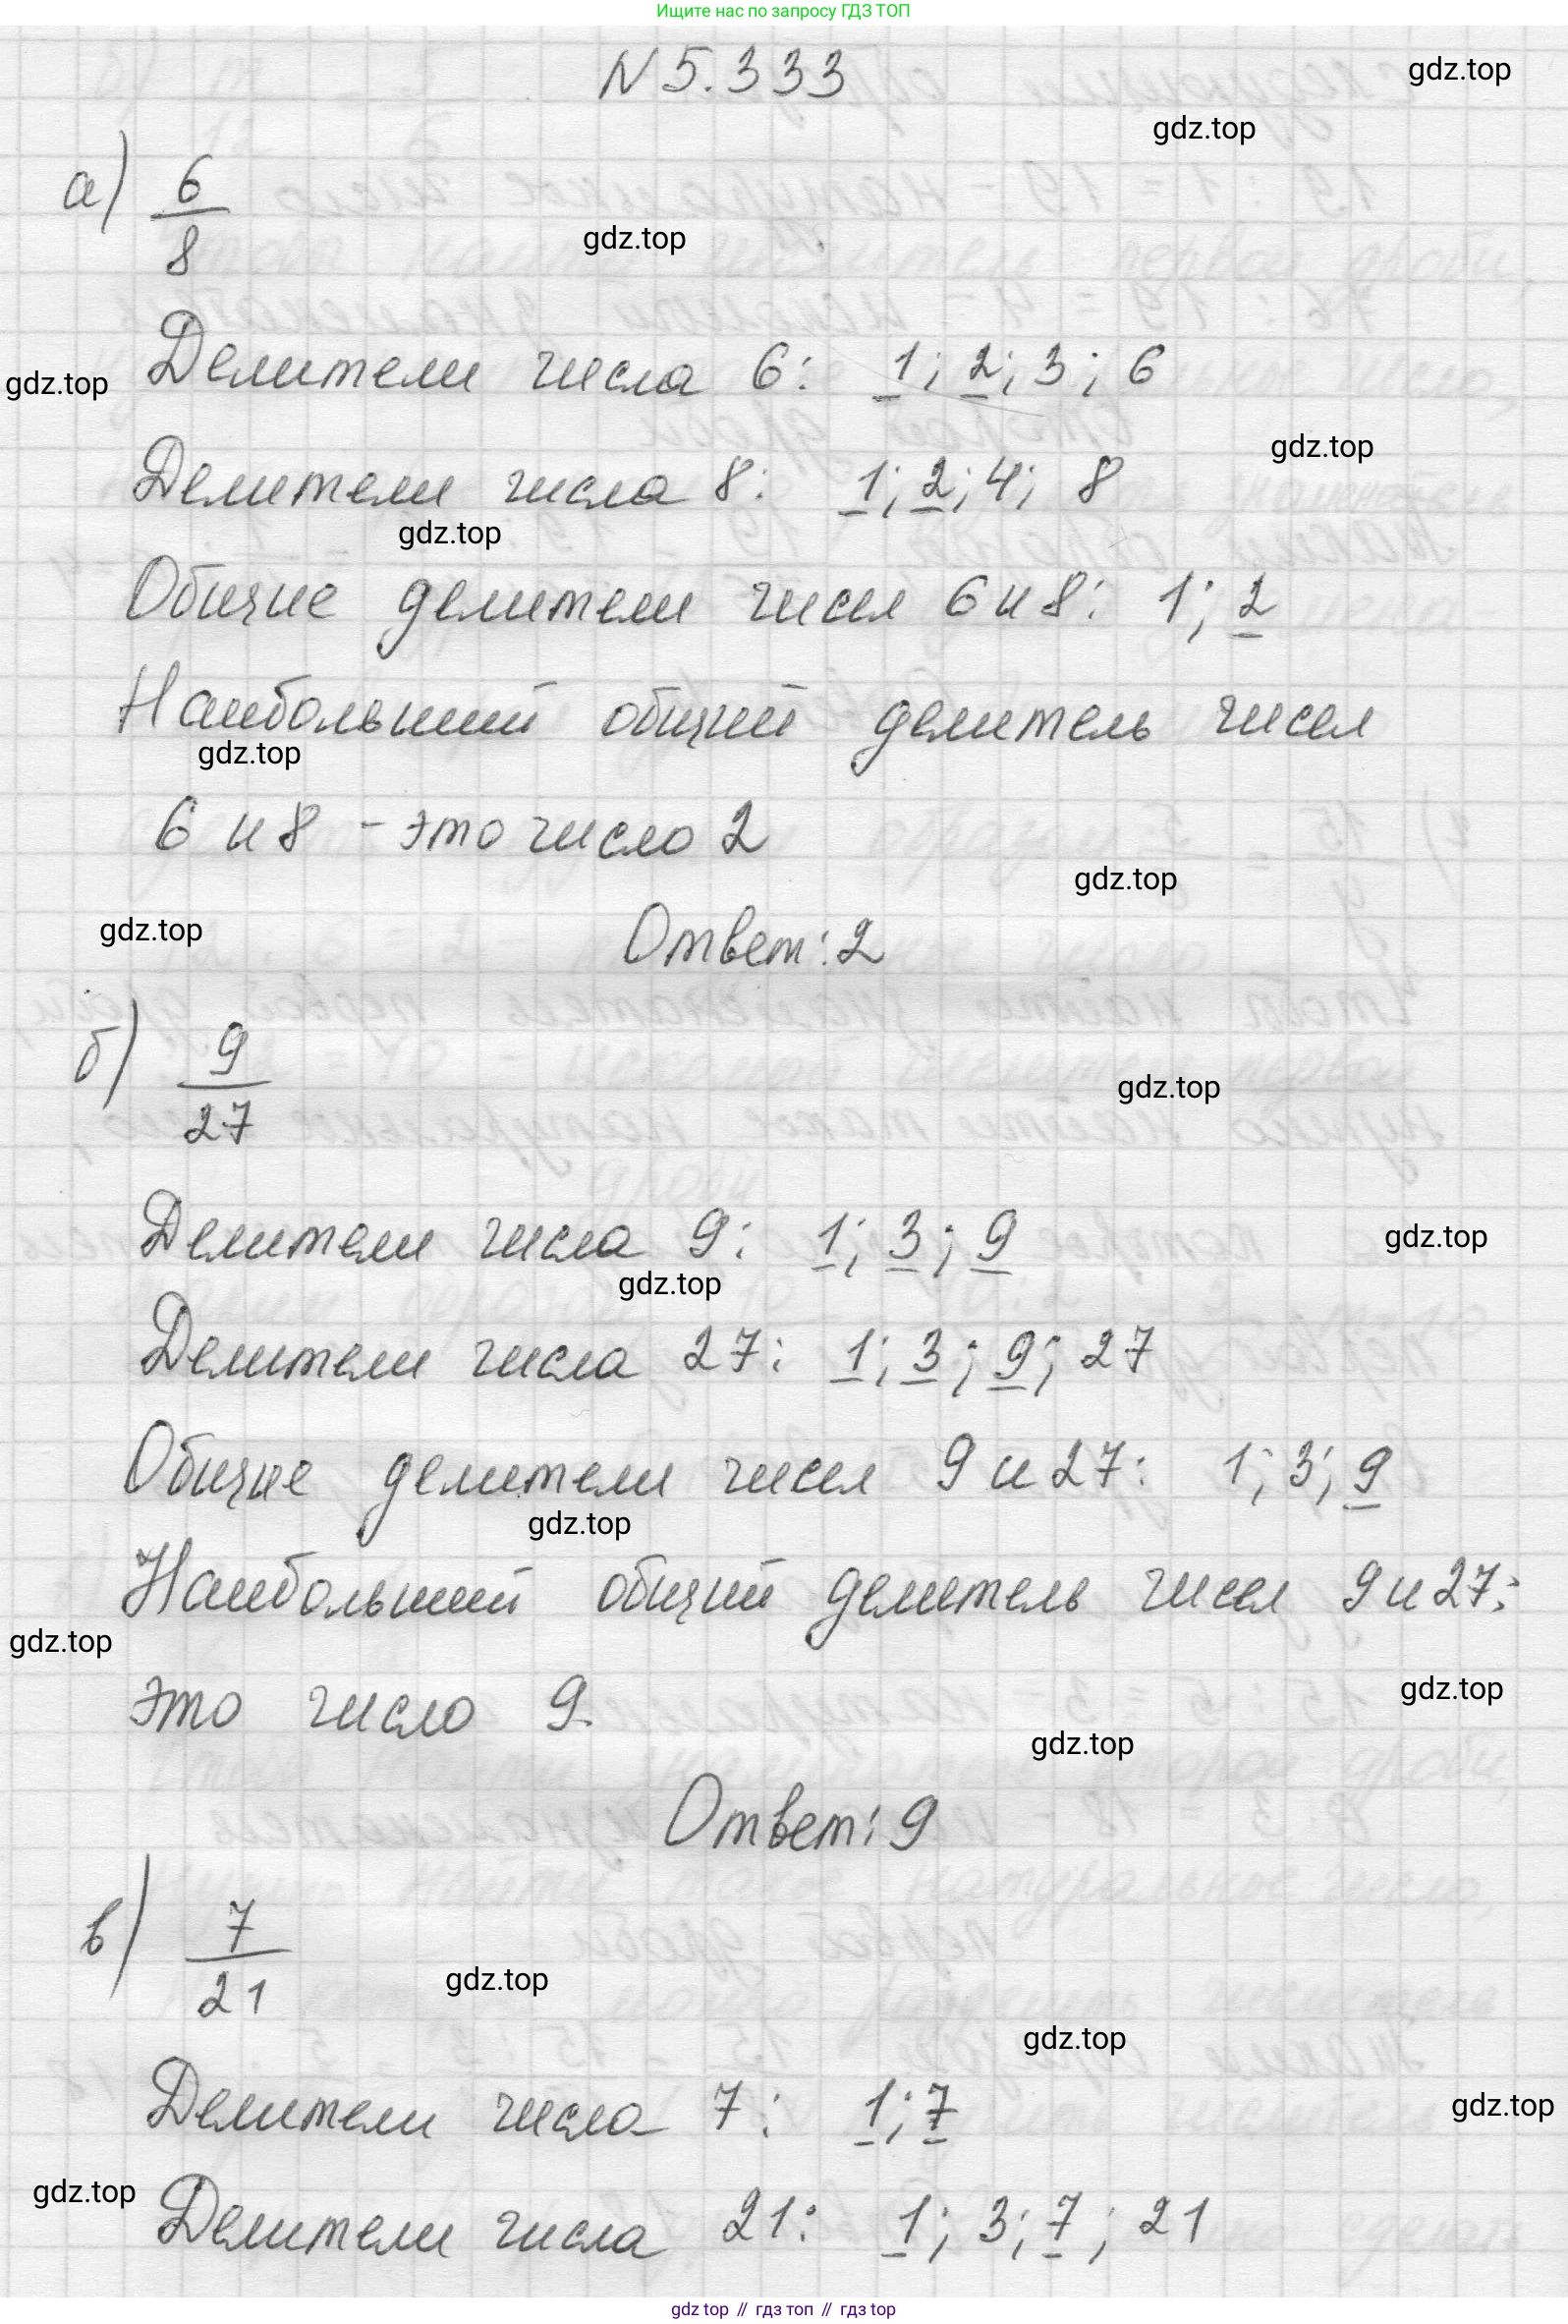 Ищите нас по запросу ГДЗ ТОП
N 5.333
gdz.top
gdz.top
а) 6/8
gdz.top
Делители числа 6: 1; 2; 3; 6
gdz.top
gdz.top
Делители числа 8: 1; 2; 4; 8
gdz.top
Общие делители чисел 6 и 8: 1; 2
Наибольший общий делитель чисел
gdz.top
6 и 8 - это число 2
gdz.top
gdz.top
Ответ: 2
б) 9/27
gdz.top
Делители числа 9: 1; 3; 9
gdz.top
gdz.top
Делители числа 27: 1; 3; 9; 27
Общие делители чисел 9 и 27: 1; 3; 9
gdz.top
Наибольший общий делитель чисел 9 и 27:
gdz.top
это число 9.
gdz.top
gdz.top
Ответ: 9
в) 7/21
gdz.top
gdz.top
Делители числа 7: 1; 7
gdz.top
gdz.top
Делители числа 21: 1; 3; 7; 21
gdz top // гдз топ // гдз top